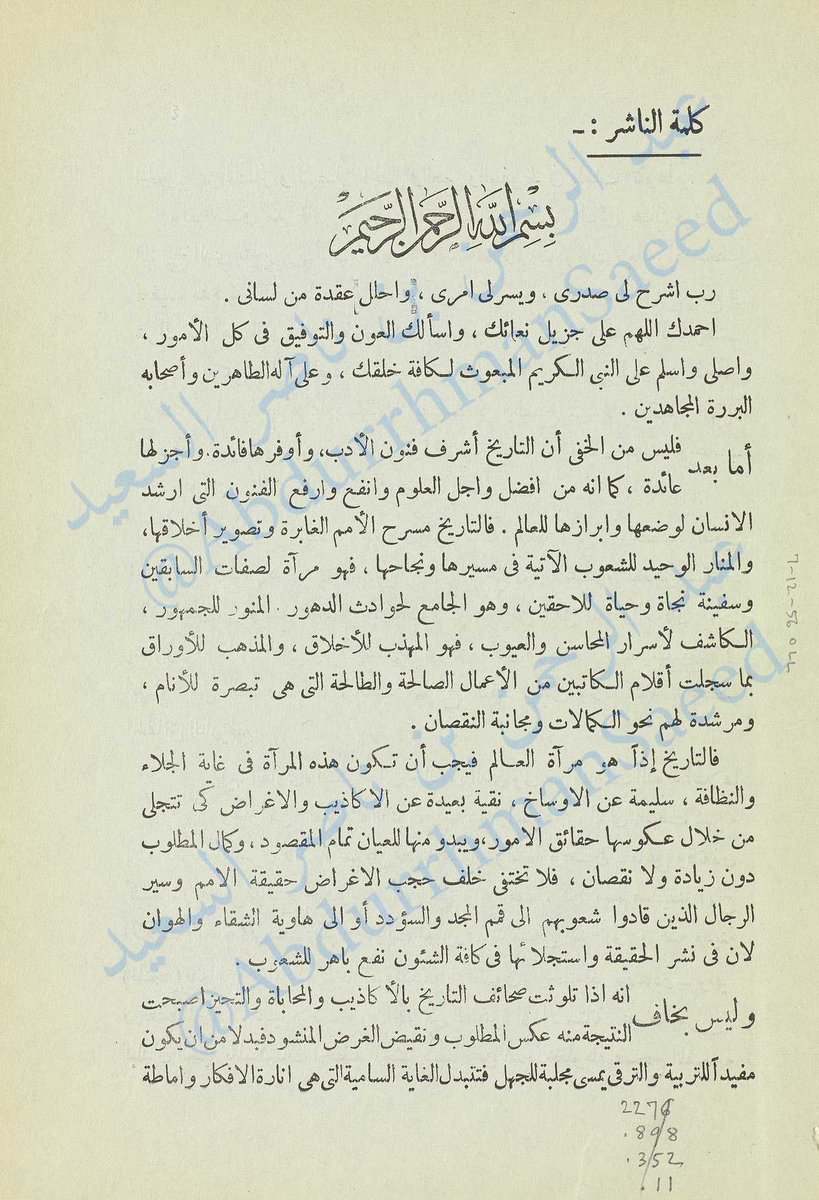 كلمة الناشر : -
بِسْمِ اللَّهِ الرَّحْمٰنِ الرَّحِيْمِ
رب اشرح لى صدرى ، ويسرلى امرى ، واحلل عقدة من لسانى .
احمدك اللهم على جزيل نعمائك ، واسألك العون والتوفيق فى كل الأمور ،
واصلى واسلم على النبى الكريم المبعوث لكافة خلقك ، وعلى آله الطاهرين وأصحابه
البررة المجاهدين .
أما بعد فليس من الخفى أن التاريخ أشرف فنون الأدب، وأوفرها فائدة. وأجزلها
عائدة ، كما انه من افضل واجل العلوم وانفع وارفع الفنون التى ارشد
الانسان لوضعها وابرازها للعالم . فالتاريخ مسرح الأمم الغابرة وتصوير أخلاقها،
والمنار الوحيد للشعوب الآتية فى مسيرها ونجاحها ، فهو مرآة لصفات السابقين
وسفينة نجاة وحياة للاحقين ، وهو الجامع لحوادث الدهور . المنور للجمهور ،
الكاشف لأسرار المحاسن والعيوب ، فهو المهذب للأخلاق ، والمذهب للأوراق
بما سجلت أقلام الكاتبين من الأعمال الصالحة والطالحة التى هى تبصرة للأنام ،
ومرشدة لهم نحو الكمالات ومجانبة النقصان .
فالتاريخ إذاً هو مرآة العالم فيجب أن تكون هذه المرآة فى غاية الجلاء
والنظافة ، سليمة عن الاوساخ ، نقية بعيدة عن الاكاذيب والاغراض كى تتجلى
من خلال عكوسها حقائق الامور، ويبدو منها للعيان تمام المقصود ، وكمال المطلوب
دون زيادة ولا نقصان ، فلا تختفى خلف حجب الاغراض حقيقة الامم وسير
الرجال الذين قادوا شعوبهم الى قمم المجد والسؤدد أو الى هاوية الشقاء والهوان
لان فى نشر الحقيقة واستجلائها فى كافة الشئون نفع باهر للشعوب .
وليس بخاف انه اذا تلوثت صحائف التاريخ بالأكاذيب والمحاباة والتحيز اصبحت
النتيجة منه عكس المطلوب ونقيض الغرض المنشود فبدلا من ان يكون
مفيداً للتربية والترقى يمسى مجلبة للجهل فتتبدل الغاية السامية التى هى انارة الافكار واماطة
2276
.898
.352
.11
7-12-56
عبد الرحمن بن ناصر السعيد
@AbdurrhmanSaeed
عبد الرحمن بن ناصر السعيد
@AbdurrhmanSaeed